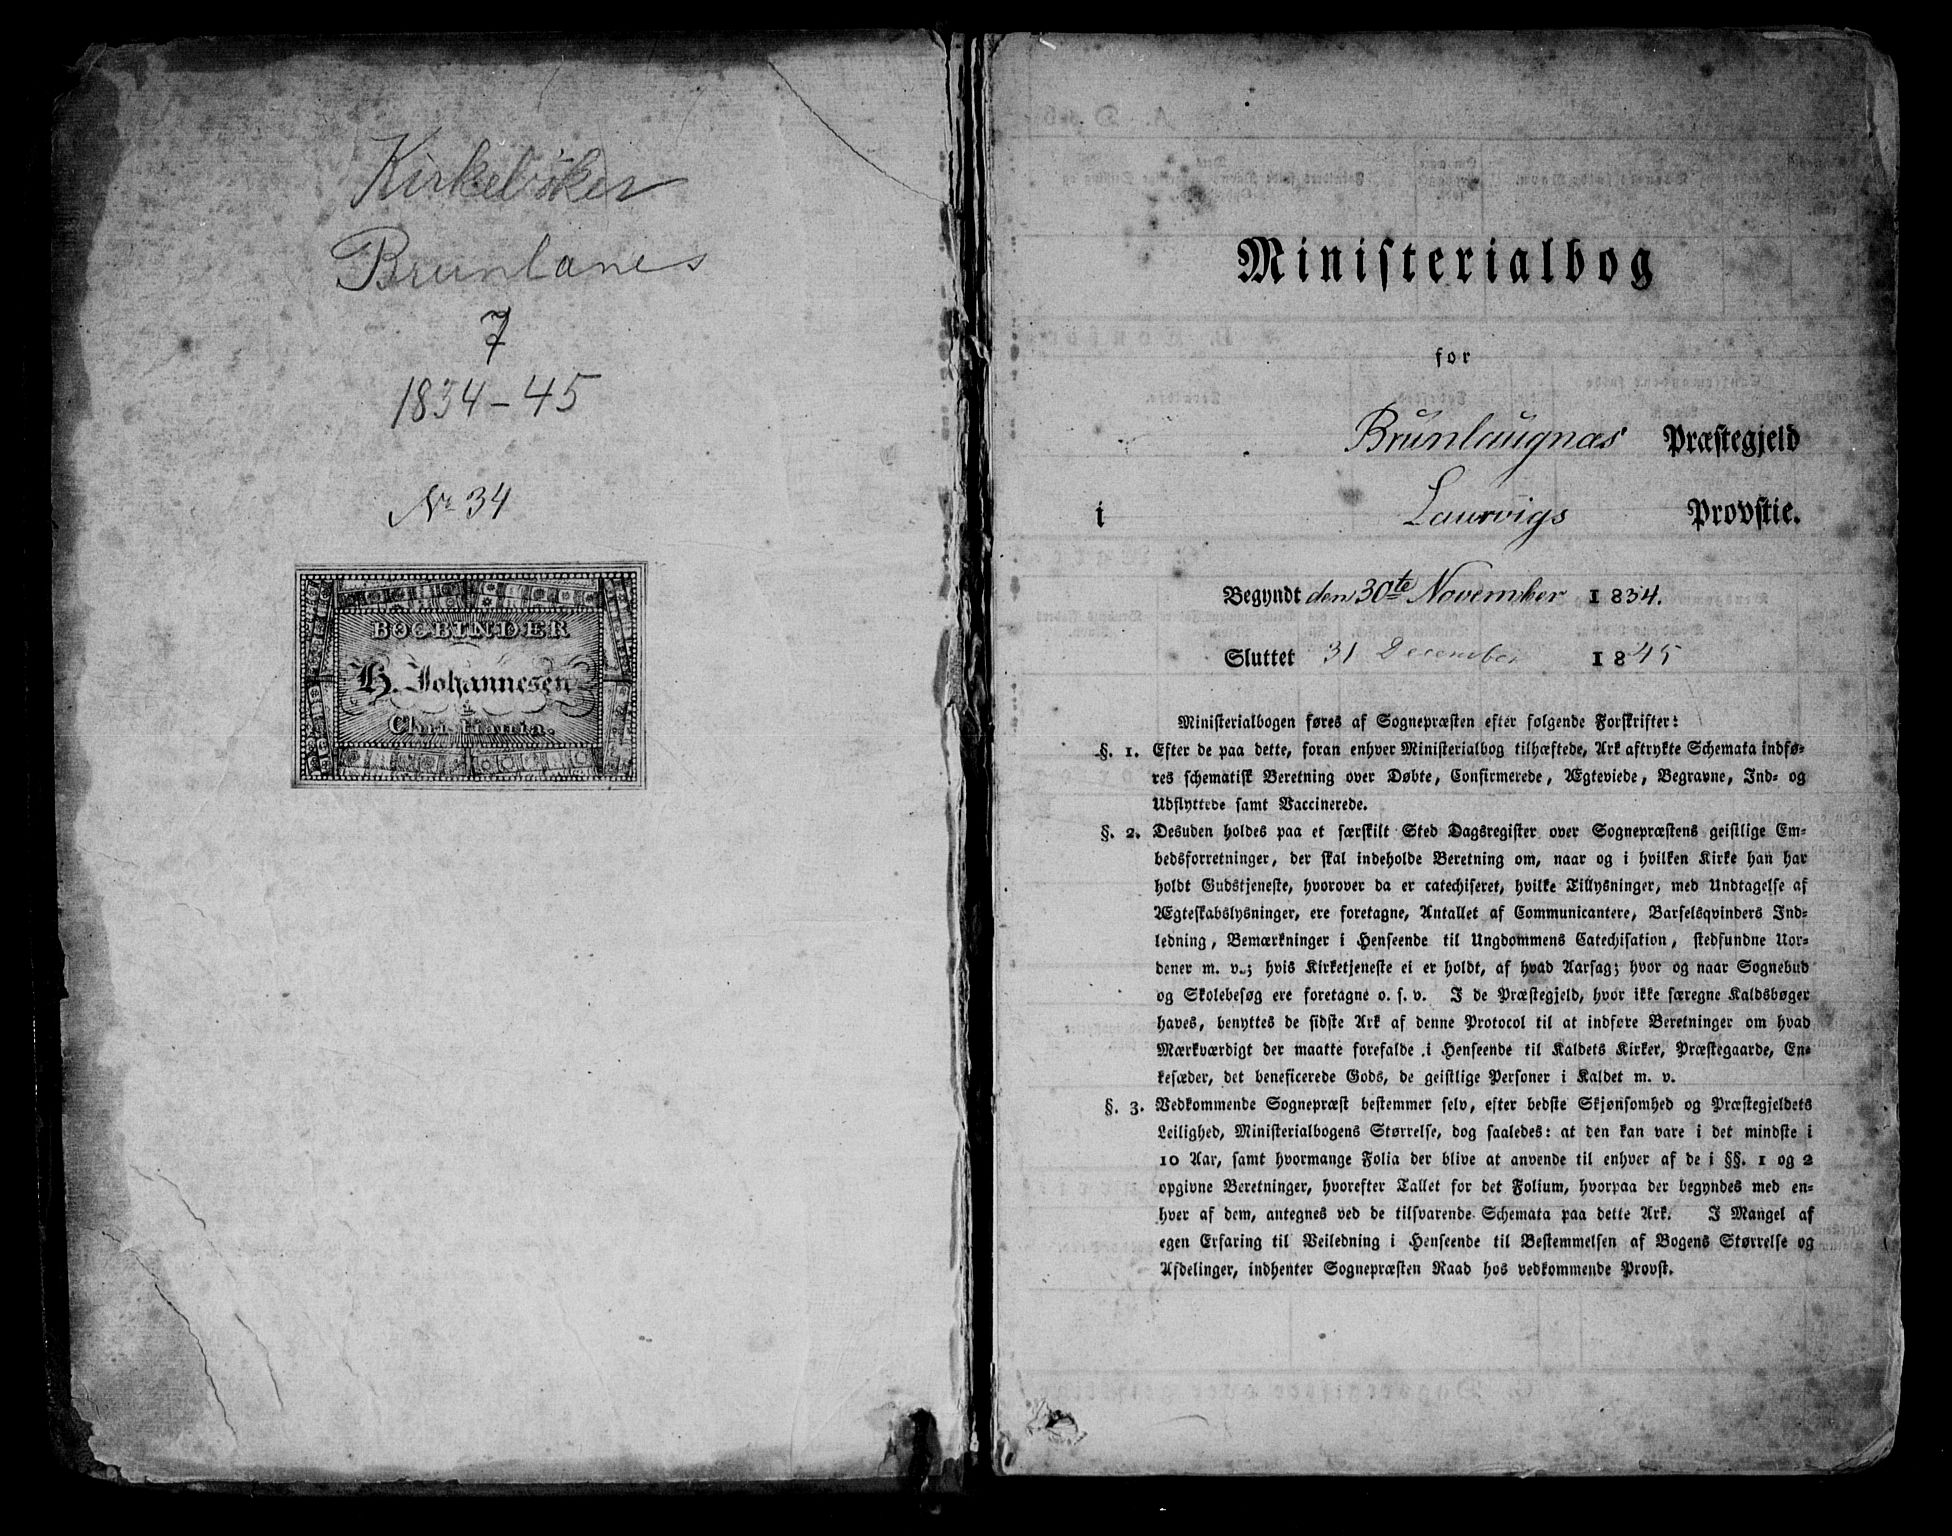 Kirkebøker
Brunlanes
7
1834-45
No 34
BOGBINDER
H. Johannesen
i
Christiania.
Ministerialbog
for
Brunlaugnæs Præstegjeld
i Laurvigs Provstie.
Begyndt den 30te November 1834.
Sluttet 31 December 1845
Ministerialbogen føres af Sognepræsten efter følgende Forskrifter:
§. 1. Efter de paa dette, foran enhver Ministerialbog tilhæftede, Ark aftrykte Schemata indfø-
res schematisk Beretning over Døbte, Confirmerede, Ægteviede, Begravne, Ind- og
Udflyttede samt Vaccinerede.
§. 2. Desuden holdes paa et særskilt Sted Dagsregister over Sognepræstens geistlige Em-
bedsforretninger, der skal indeholde Beretning om, naar og i hvilken Kirke han har
holdt Gudstjeneste, hvorover da er catechiseret, hvilke Tillysninger, med Undtagelse af
Ægteskabslysninger, ere foretagne, Antallet af Communicantere, Barselqvinders Ind-
ledning, Bemærkninger i Henseende til Ungdommens Catechisation, stedfundne Uor-
dener m. v.; hvis Kirketjeneste ei er holdt, af hvad Aarsag; hvor og naar Sognebud
og Skolebesøg ere foretagne o. s. v. I de Præstegjeld, hvor ikke særegne Kaldsbøger
haves, benyttes de sidste Ark af denne Protocol til at indføre Beretninger om hvad
Mærkværdigt der maatte forefalde i Henseende til Kaldets Kirker, Præstegaarde, En-
kesæder, det beneficerede Gods, de geistlige Personer i Kaldet m. v.
§. 3. Vedkommende Sognepræst bestemmer selv, efter bedste Skjønsomhed og Præstegjeldets
Leilighed, Ministerialbogens Størrelse, dog saaledes: at den kan vare i det mindste i
10 Aar, samt hvormange Folia der blive at anvende til enhver af de i §§. 1 og 2
opgivne Beretninger, hvorefter Tallet for det Folium, hvorpaa der begyndes med en-
hver af dem, antegnes ved de tilsvarende Schemata paa dette Ark. I Mangel af
egen Erfaring til Veiledning i Henseende til Bestemmelsen af Bogens Størrelse og
Afdelinger, indhenter Sognepræsten Raad hos vedkommende Provst.